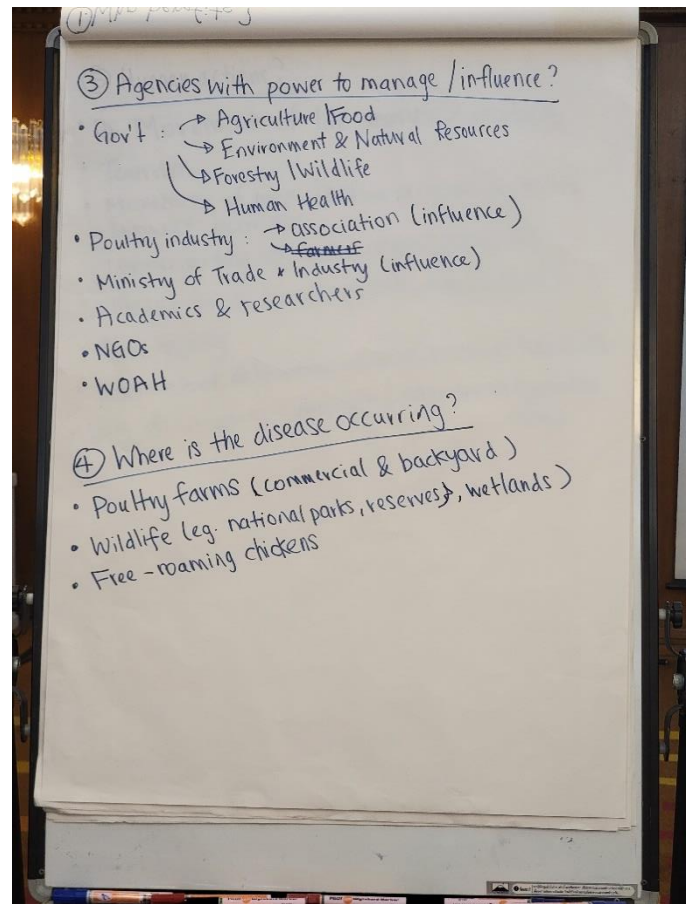 ③ Agencies with power to manage / influence?
• Gov't : → Agriculture / Food
→ Environment & Natural Resources
→ Forestry / Wildlife
→ Human Health
• Poultry industry : → association (influence)
→ farmers
• Ministry of Trade & Industry (influence)
• Academics & researchers
• NGOs
• WOAH
④ Where is the disease occurring?
• Poultry farms (commercial & backyard)
• Wildlife (eg. national parks, reserves, wetlands)
• Free-roaming chickens